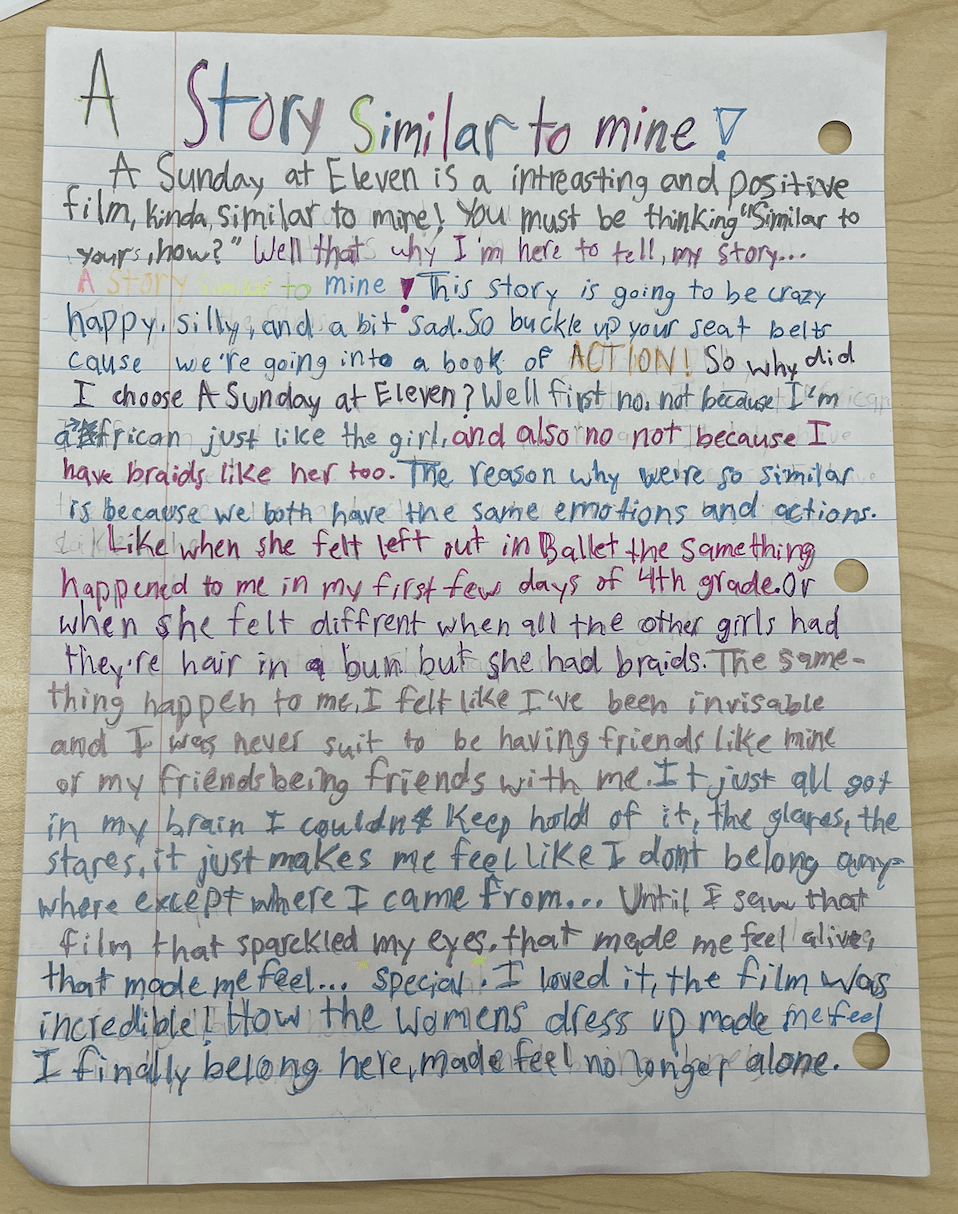 A Story Similar to mine!
A Sunday at Eleven is a intreasting and positive
film, kinda, similar to mine! You must be thinking "Similar to
yours, how?" Well that why I'm here to tell, my story...
A Story Similar to mine! This story is going to be crazy
happy, silly, and a bit sad. So buckle up your seat belts
cause we're going into a book of ACTION! So why did
I choose A Sunday at Eleven? Well first no, not because I'm
african just like the girl, and also no not because I
have braids like her too. The reason why we're so similar
is because we both have the same emotions and actions.
Like when she felt left out in Ballet the same thing
happened to me in my first few days of 4th grade. Or
when she felt diffrent when all the other girls had
they're hair in a bun but she had braids. The same-
thing happen to me, I felt like I've been invisable
and I was never suit to be having friends like mine
or my friends being friends with me. It just all got
in my brain I couldn't keep hold of it, the glares, the
stares, it just makes me feel like I dont belong any-
where except where I came from... Until I saw that
film that sparckled my eyes, that made me feel alive,
that made me feel... special! I loved it, the film was
incredible! How the womens dress up made me feel
I finally belong here, made feel no longer alone.